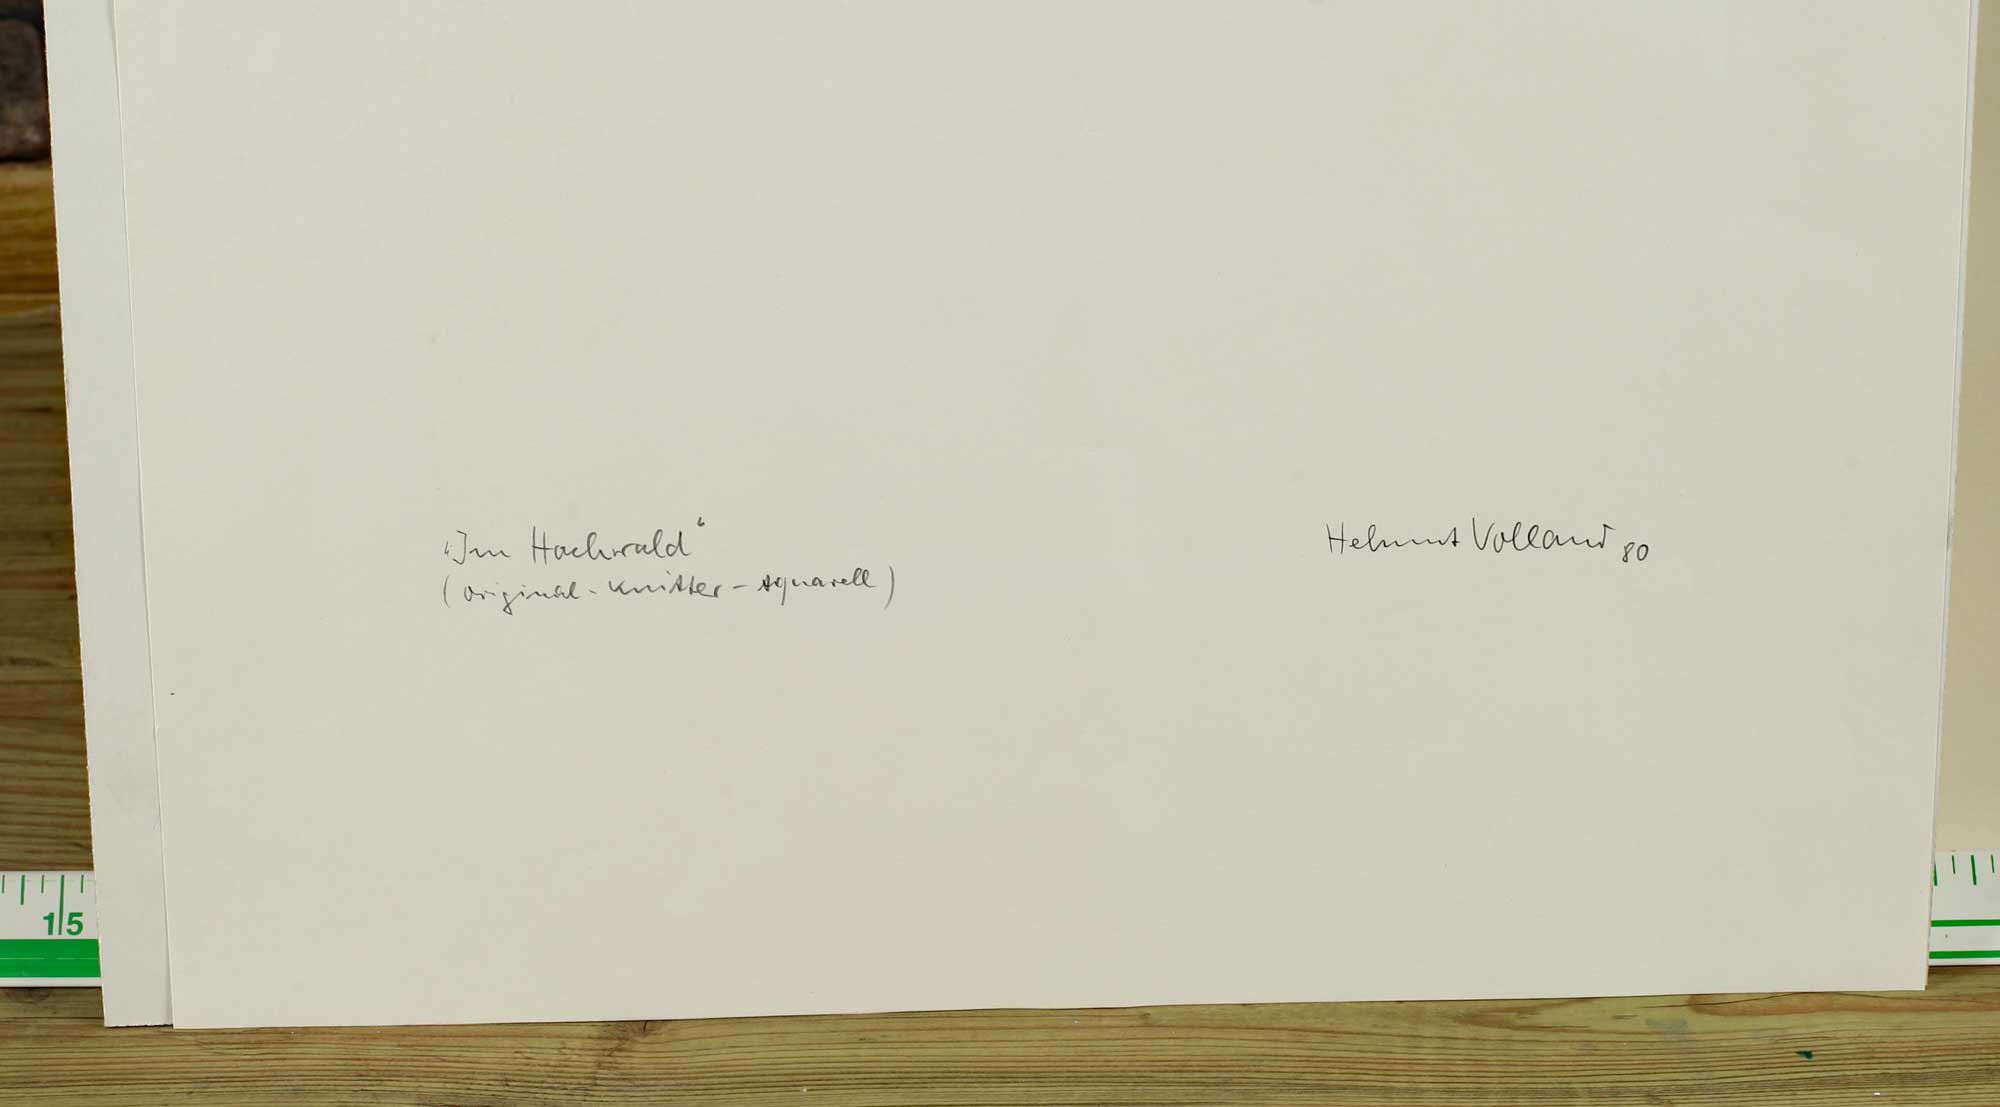 „Im Hochwald“
(original-Knitter-Aquarell)
Helmut Volland 80
15